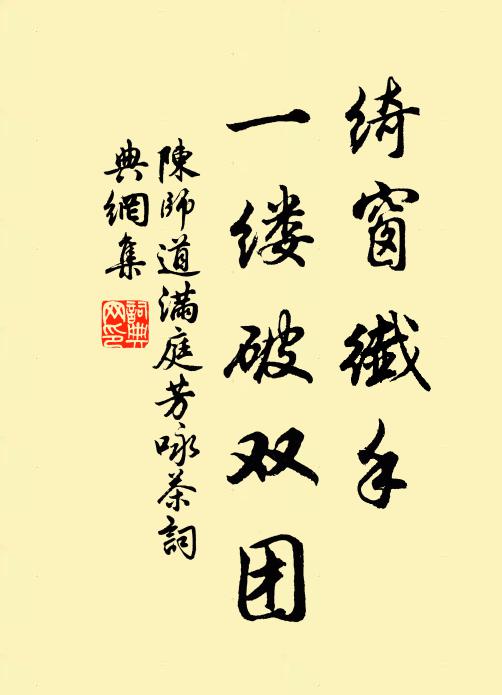 绮窗纖手
一缕破双团
陳師道满庭芳咏茶詞
典網集
詞典
网印